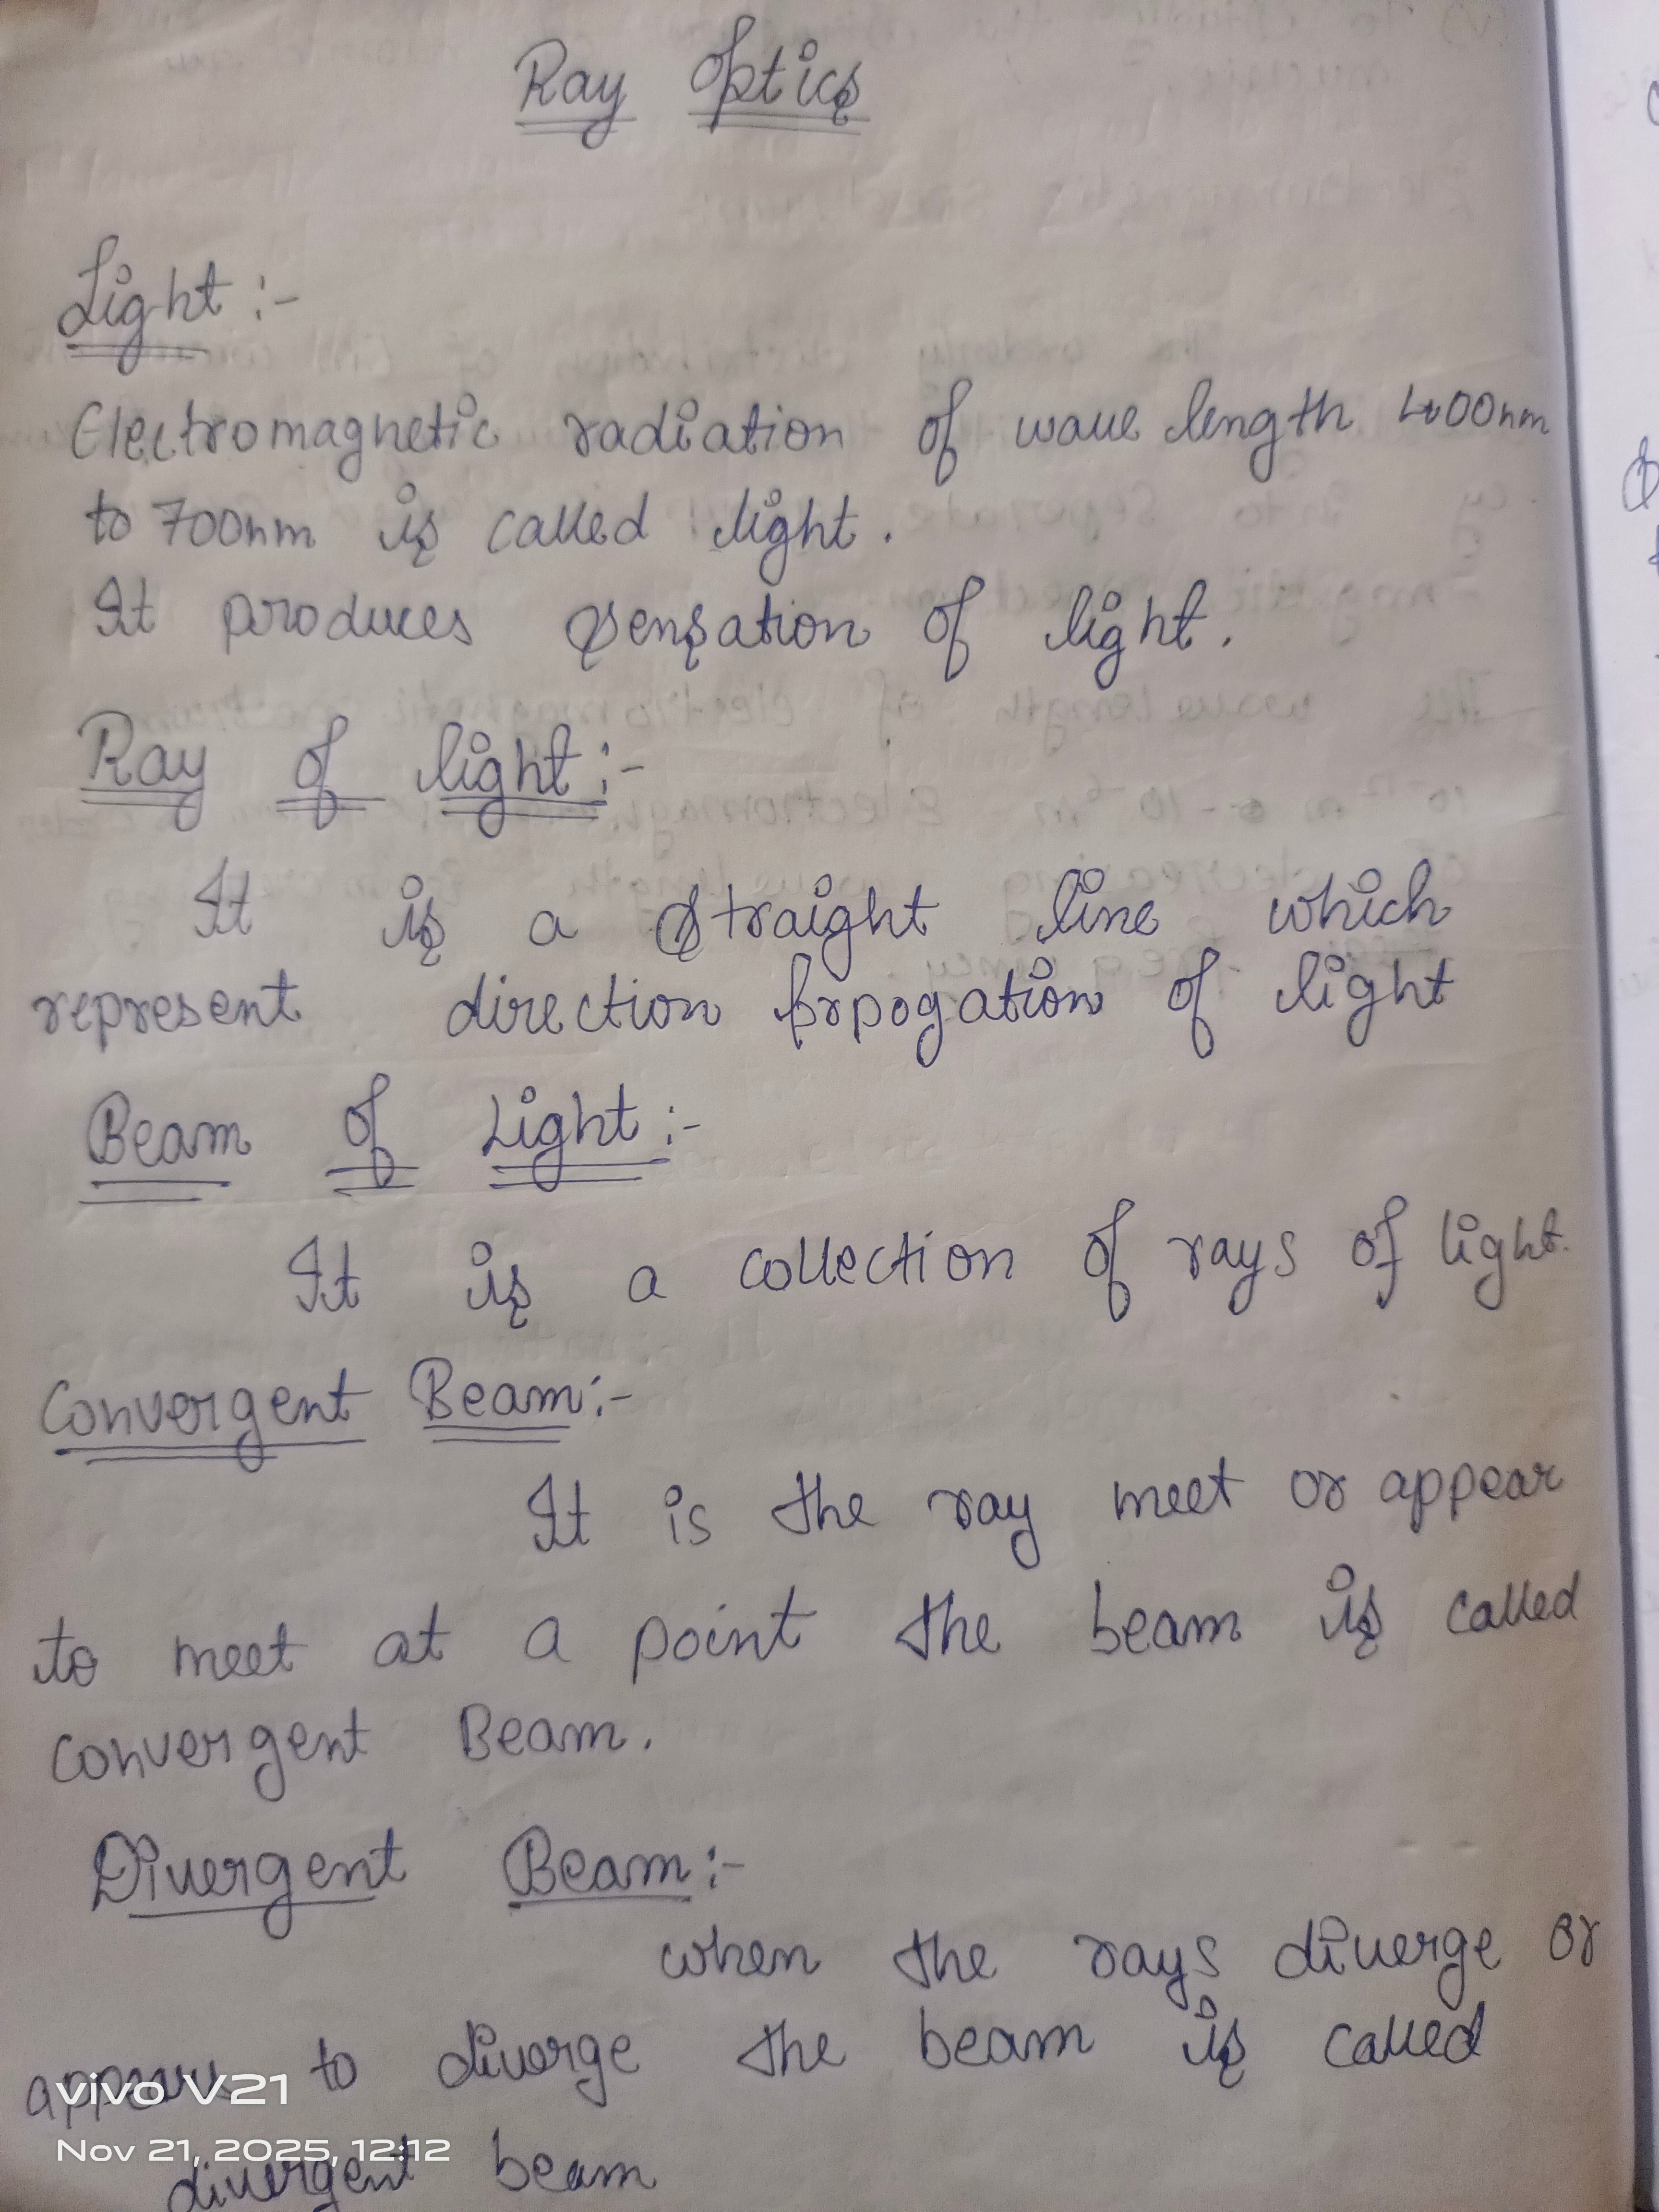 Ray Optics
Light :-
Electromagnetic radiation of wave length 400nm
to 700nm is called light.
It produces sensation of light.
Ray of light :-
It is a straight line which
represent direction propogation of light
Beam of Light :-
It is a collection of rays of light.
Convergent Beam :-
It is the ray meet or appear
to meet at a point the beam is called
convergent Beam.
Divergent Beam :-
when the rays diverge or
appears to diverge the beam is called
divergent beam
vivo V21
Nov 21, 2025, 12:12